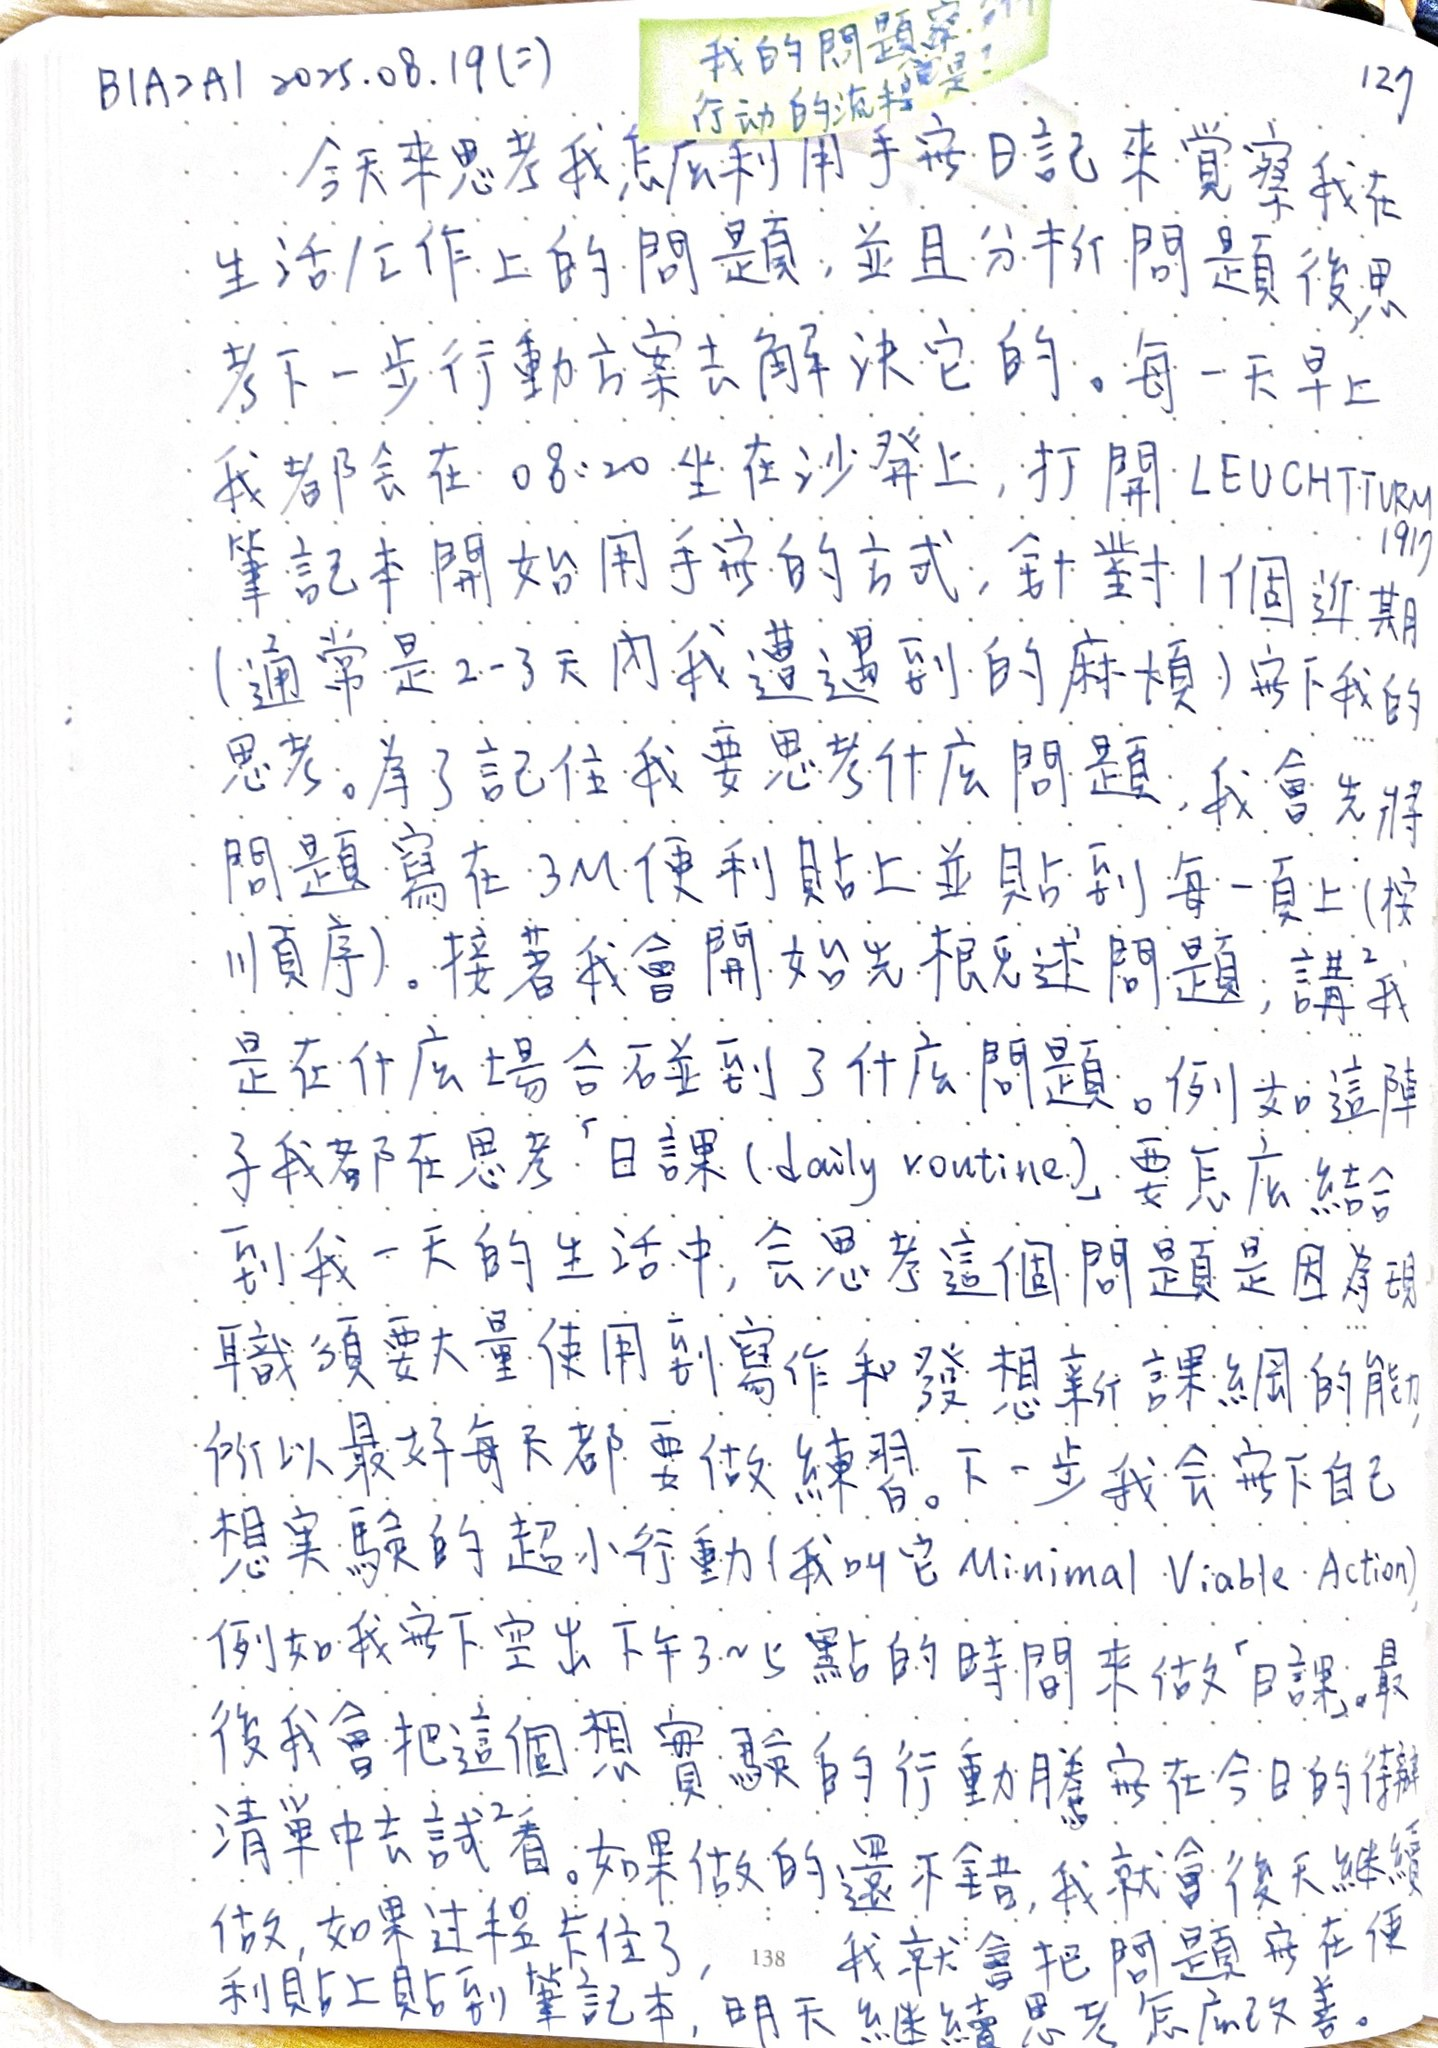 B1A2A1 2025.08.19(二)
127
我的問題察
行动的流程是?
今天來思考我怎么利用手寫日記來覚察我在
生活/工作上的問題,並且分析問題後,思
考下一步行動方案去解決它的。每一天早上
我都会在 08:20 坐在沙發上,打開 LEUCHTTURM
1917
筆記本開始用手寫的方式,針對1個近期
(通常是2-3天內我遭遇到的麻煩)寫下我的
思考。為了記住我要思考什麼問題,我會先將
問題寫在3M便利貼上並貼到每一頁上(按
順序)。接著我會開始先概述問題,講2我
是在什么場合碰到了什么問題。例如這陣
子我都在思考「日課(daily routine)」要怎么結合
到我一天的生活中,会思考這個問題是因為現
職須要大量使用到寫作和發想新課綱的能力,
所以最好每天都要做練習。下一步我会寫下自己
想実驗的超小行動(我叫它Minimal Viable Action),
例如我寫下空出下午3~5點的時間來做「日課」。最
後我會把這個想實驗的行動謄寫在今日的待辦
清單中去試2看。如果做的還不錯,我就會後天継續
做,如果过程卡住了,我就會把問題寫在便
138
利貼上貼到筆記本,明天継續思考怎么改善。